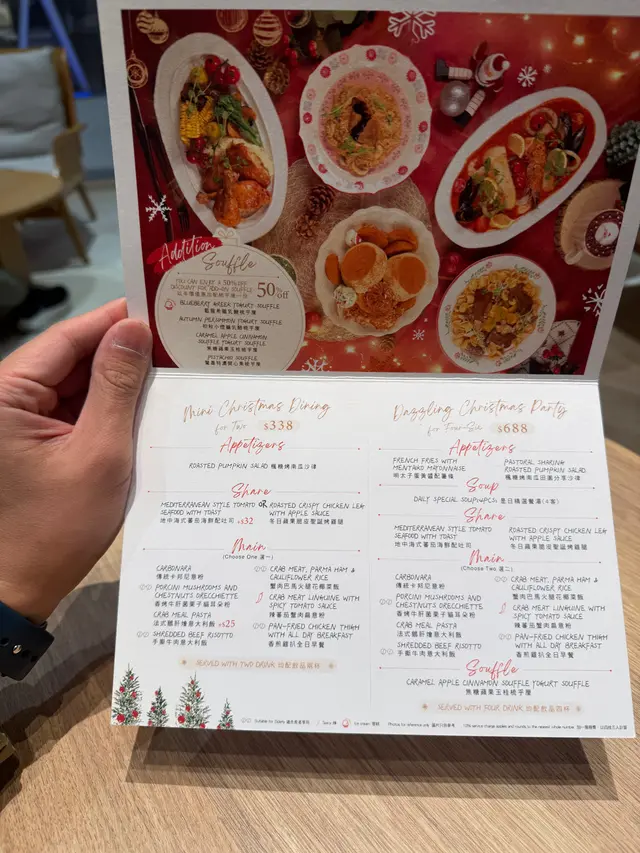 Addition
Souffle
YOU CAN ENJOY A 50% OFF
DISCOUNT FOR ADD-ON SOUFFLE
50% off
BLUEBERRY GREEK YOGURT SOUFFLE
AUTUMN PERSIMMON YOGURT SOUFFLE
CARAMEL APPLE CINNAMON
SOUFFLE YOGURT SOUFFLE
焦糖蘋果玉桂梳乎厘
PISTACHIO SOUFFLE
Mini Christmas Dining
for Two $338
Appetizers
ROASTED PUMPKIN SALAD 楓糖烤南瓜沙律
Share
MEDITERRANEAN STYLE TOMATO OR ROASTED CRISPY CHICKEN LEG
SEAFOOD WITH TOAST WITH APPLE SAUCE
地中海式蕃茄海鮮配吐司 +$32 冬日蘋果圈座聖誕烤雞腿
Main
(Choose One 選一)
CARBONARA
傳統卡邦尼意粉
PORCINI MUSHROOMS AND
CHESTNUTS ORECCHIETTE
香烤牛肝菌栗子貓耳朵粉
CRAB MEAL PASTA
法式鵝肝燴意大利飯 +$25
SHREDDED BEEF RISOTTO
手撕牛肉意大利飯
CRAB MEAT, PARMA HAM &
CAULIFLOWER RICE
蟹肉巴馬火腿花椰菜飯
CRAB MEAT LINGUINE WITH
SPICY TOMATO SAUCE
辣蕃茄蟹肉扁意粉
PAN-FRIED CHICKEN THIGH
WITH ALL DAY BREAKFAST
香煎雞扒全日早餐
SERVED WITH TWO DRINK 跟配飲品兩杯
Dazzling Christmas Party
for Four-Six $688
Appetizers
FRENCH FRIES WITH
MENTAIKO MAYONNAISE
明太子蛋黃醬配薯條
PASTORAL SHARING
ROASTED PUMPKIN SALAD
楓糖烤南瓜田園分享沙律
Soup
DAILY SPECIAL SOUP(4PCS) 是日精選餐湯(4客)
Share
MEDITERRANEAN STYLE TOMATO
SEAFOOD WITH TOAST
地中海式蕃茄海鮮配吐司
ROASTED CRISPY CHICKEN LEG
WITH APPLE SAUCE
冬日蘋果圈座聖誕烤雞腿
Main
(Choose Two 選二)
CARBONARA
傳統卡邦尼意粉
PORCINI MUSHROOMS AND
CHESTNUTS ORECCHIETTE
香烤牛肝菌栗子貓耳朵粉
CRAB MEAL PASTA
法式鵝肝燴意大利飯
SHREDDED BEEF RISOTTO
手撕牛肉意大利飯
CRAB MEAT, PARMA HAM &
CAULIFLOWER RICE
蟹肉巴馬火腿花椰菜飯
CRAB MEAT LINGUINE WITH
SPICY TOMATO SAUCE
辣蕃茄蟹肉扁意粉
PAN-FRIED CHICKEN THIGH
WITH ALL DAY BREAKFAST
香煎雞扒全日早餐
Souffle
CARAMEL APPLE CINNAMON SOUFFLE YOGURT SOUFFLE
焦糖蘋果玉桂梳乎厘
SERVED WITH FOUR DRINK 跟配飲品四杯
Spicy 辣
Photos for reference only 圖片只供參考